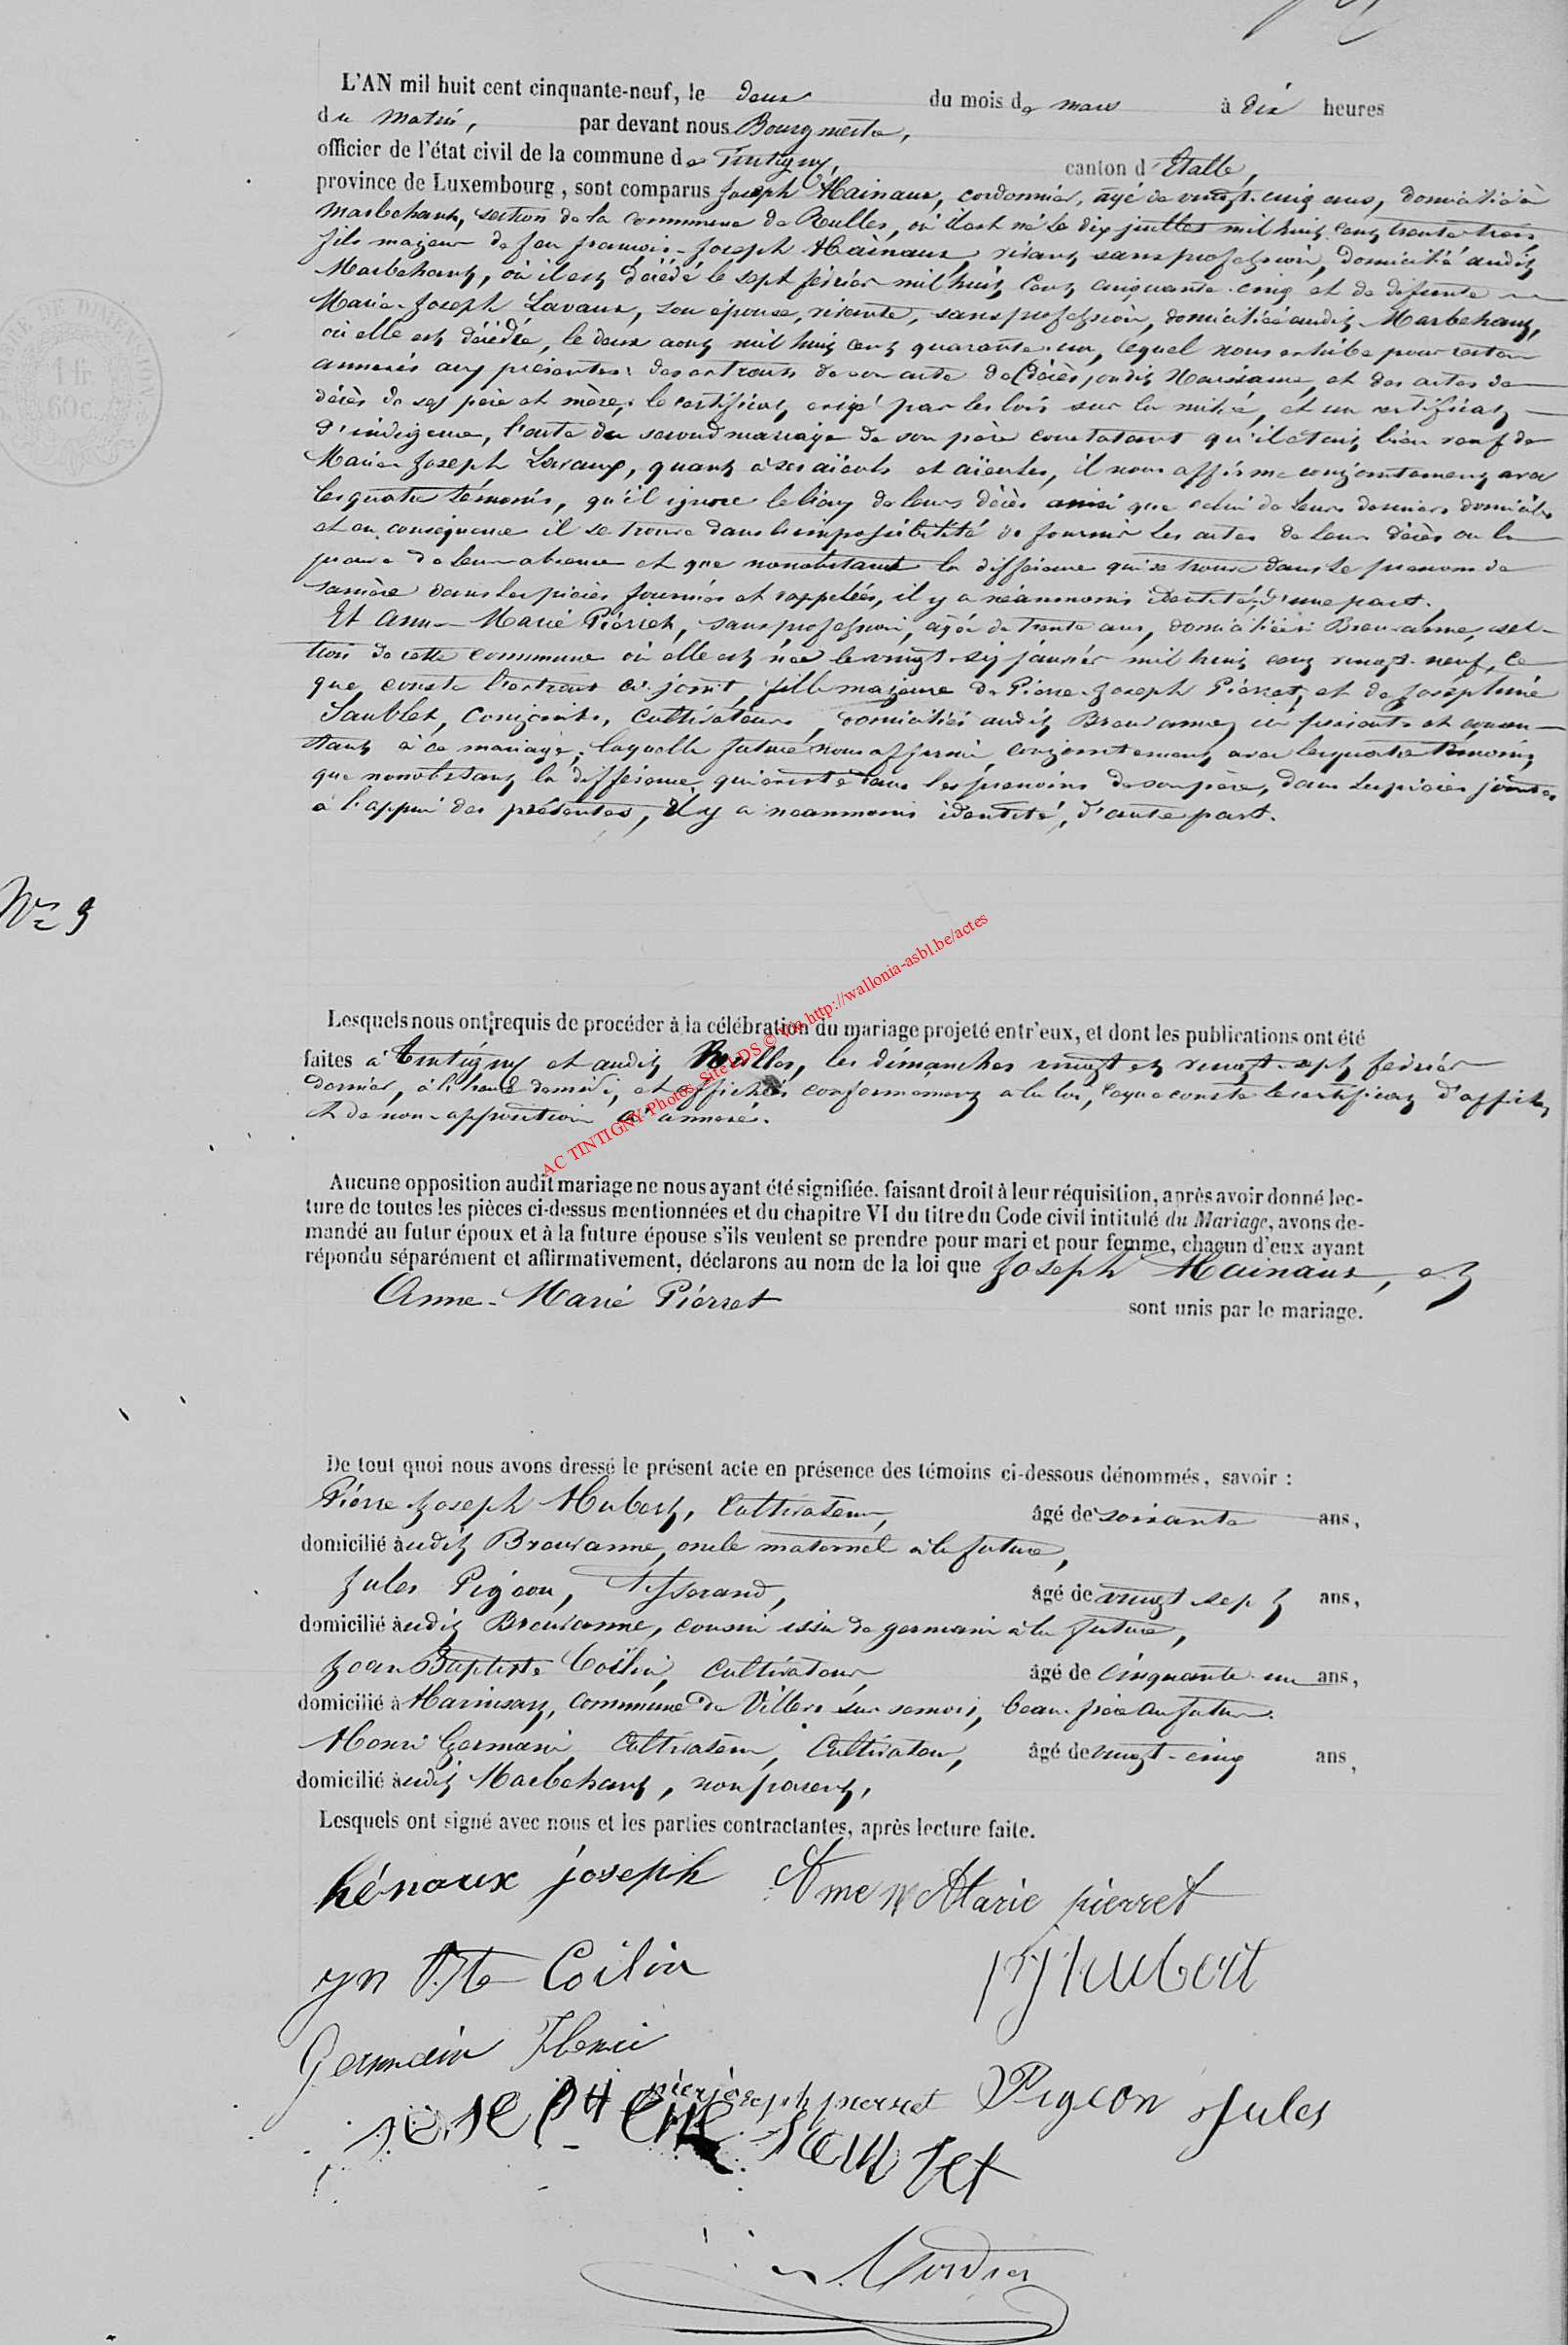 L'AN mil huit cent cinquante-neuf, le deux du mois de mars à dix heures
du matin, par devant nous Bourgmestre,
officier de l'état civil de la commune de Tintigny, canton d'Etalle,
province de Luxembourg, sont comparus Joseph Hainaux, cordonnier, agé de vingt-cinq ans, domicilié à
Marbehant, section de la commune de Rulles, où il est né le dix juillet mil huit cent trente trois,
fils majeur de feu françois-Joseph Hainaux, vivant sans profession, domicilié audit
Marbehant, où il est décédé le sept février mil huit cent cinquante-cinq et de défunte
Marie-Joseph Lavaux, son épouse, vivante, sans profession, domiciliée audit Marbehant,
où elle est décédée, le deux aout mil huit cent quarante-un, lequel nous exhibe pour rester
annexés aux présentes: des extraits de son acte de naissance, et des actes de
décès de ses père et mère, le certificat exigé par les lois sur la milice, et un certificat
d'indigence, l'acte du second mariage de son père constatant qu'il était bien veuf de
Marie-Joseph Lavaux, quant à ses aïeuls et aïeules, il nous affirme conjointement avec
les quatre témoins, qu'il ignore le lieu de leurs décès ainsi que celui de leurs derniers domiciles
et en conséquence il se trouve dans l'impossibilité de fournir les actes de leurs décès ou la
preuve de leur absence et que nonobstant la différence qui se trouve dans le prenom de
sa mère dans les pièces fournies et rappelées, il y a néanmoins identité, d'une part.
Et Anne-Marie Piérret, sans profession, agée de trente ans, domiciliée à Breuvanne, sec-
tion de cette commune où elle est née le vingt-six janvier mil huit cent vingt-neuf, ce
que conste l'extrait ci-joint, fille majeure de Pierre-Joseph Piérret, et de Joséphine
Saublet, conjoints, cultivateurs, domiciliés audit Breuvanne, ici présents et consen-
tant à ce mariage; laquelle future nous affirme, conjointement avec les quatre témoins
que nonobstant la différence qui existe dans les prenoms de son père, dans les pièces jointes
à l'appui des présentes, il y a néanmoins identité, d'autre part.
Nº 9
Lesquels nous ont requis de procéder à la célébration du mariage projeté entr'eux, et dont les publications ont été
faites à Tintigny et audit Rulles, les dimanches vingt et vingt-sept février
dernier, à l'heure de midi, et affichées conformément à la loi, ce que conste le certificat d'affiche
et de non-opposition annexé.
AC TINTIGNY Photos, Site LDS © Via http://wallonia-asbl.be/actes
Aucune opposition audit mariage ne nous ayant été signifiée, faisant droit à leur réquisition, après avoir donné lec-
ture de toutes les pièces ci-dessus mentionnées et du chapitre VI du titre du Code civil intitulé du Mariage, avons de-
mandé au futur époux et à la future épouse s'ils veulent se prendre pour mari et pour femme, chacun d'eux ayant
répondu séparément et affirmativement, déclarons au nom de la loi que Joseph Hainaux, et
Anne-Marie Piérret sont unis par le mariage.
De tout quoi nous avons dressé le présent acte en présence des témoins ci-dessous dénommés, savoir :
Piérre-Joseph Hubert, cultivateur, âgé de soixante ans,
domicilié audit Breuvanne, oncle maternel à la future,
Jules Pigeon, Tisserand, âgé de vingt sept ans,
domicilié audit Breuvanne, cousin issu de germain à la future,
Jean Baptiste Coilin, cultivateur âgé de cinquante-un ans,
domicilié à Harinsart, commune de Villers sur semois, beau-frère au futur.
Henri Germain, Cultivateur, Cultivateur, âgé de vingt-cinq ans,
domicilié audit Marbehant, non parent,
Lesquels ont signé avec nous et les parties contractantes, après lecture faite.
hénaux joseph Anne Marie pierret
jn Bte Coilin pjhubert
Germain Henri
pierjoseph pierret Pigeon Jules